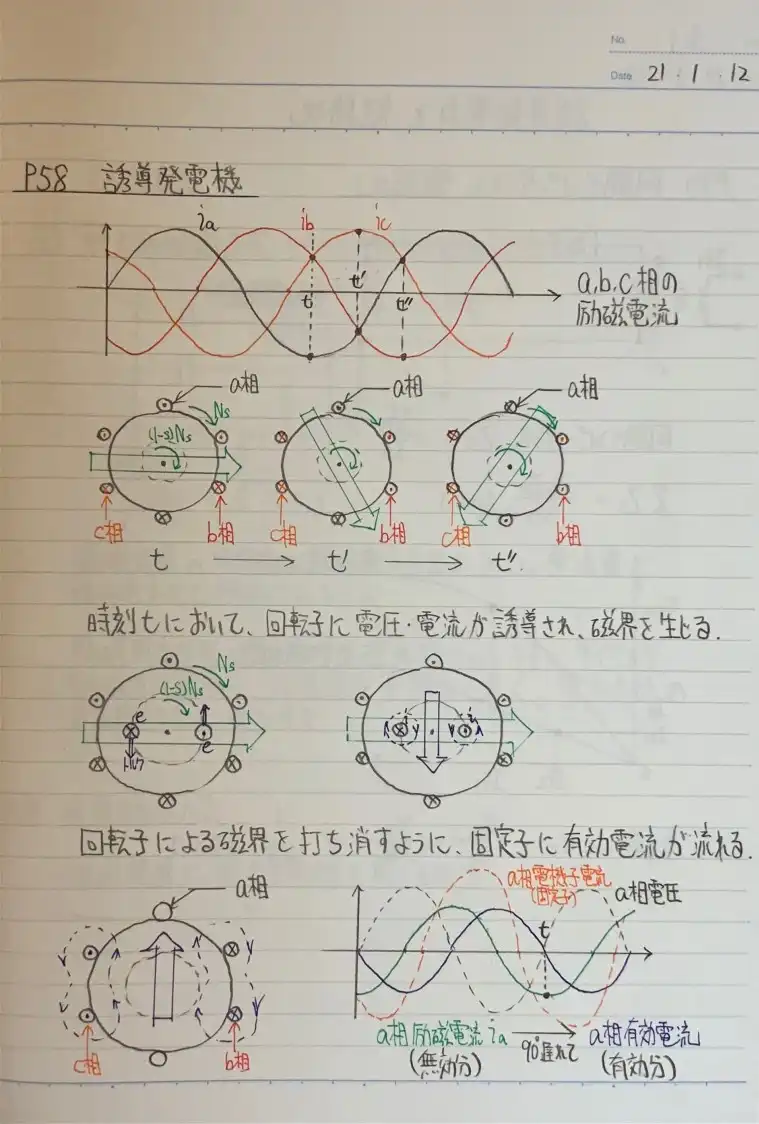 No.
Date 21・1・12
P58 誘導発電機
ia ib ic
t t' t''
a,b,c相の
励磁電流
a相 a相 a相
Ns
(1-S)Ns
c相 b相 c相 b相 c相 b相
t t' t''
時刻tにおいて、回転子に電圧・電流が誘導され、磁界を生じる.
Ns
(1-S)Ns
e i i
e
トルク
回転子による磁界を打ち消すように、固定子に有効電流が流れる.
a相
a相電機子電流
(固定子)
a相電圧
t
c相 b相
a相励磁電流ia 90°遅れて a相有効電流
(無効分) (有効分)